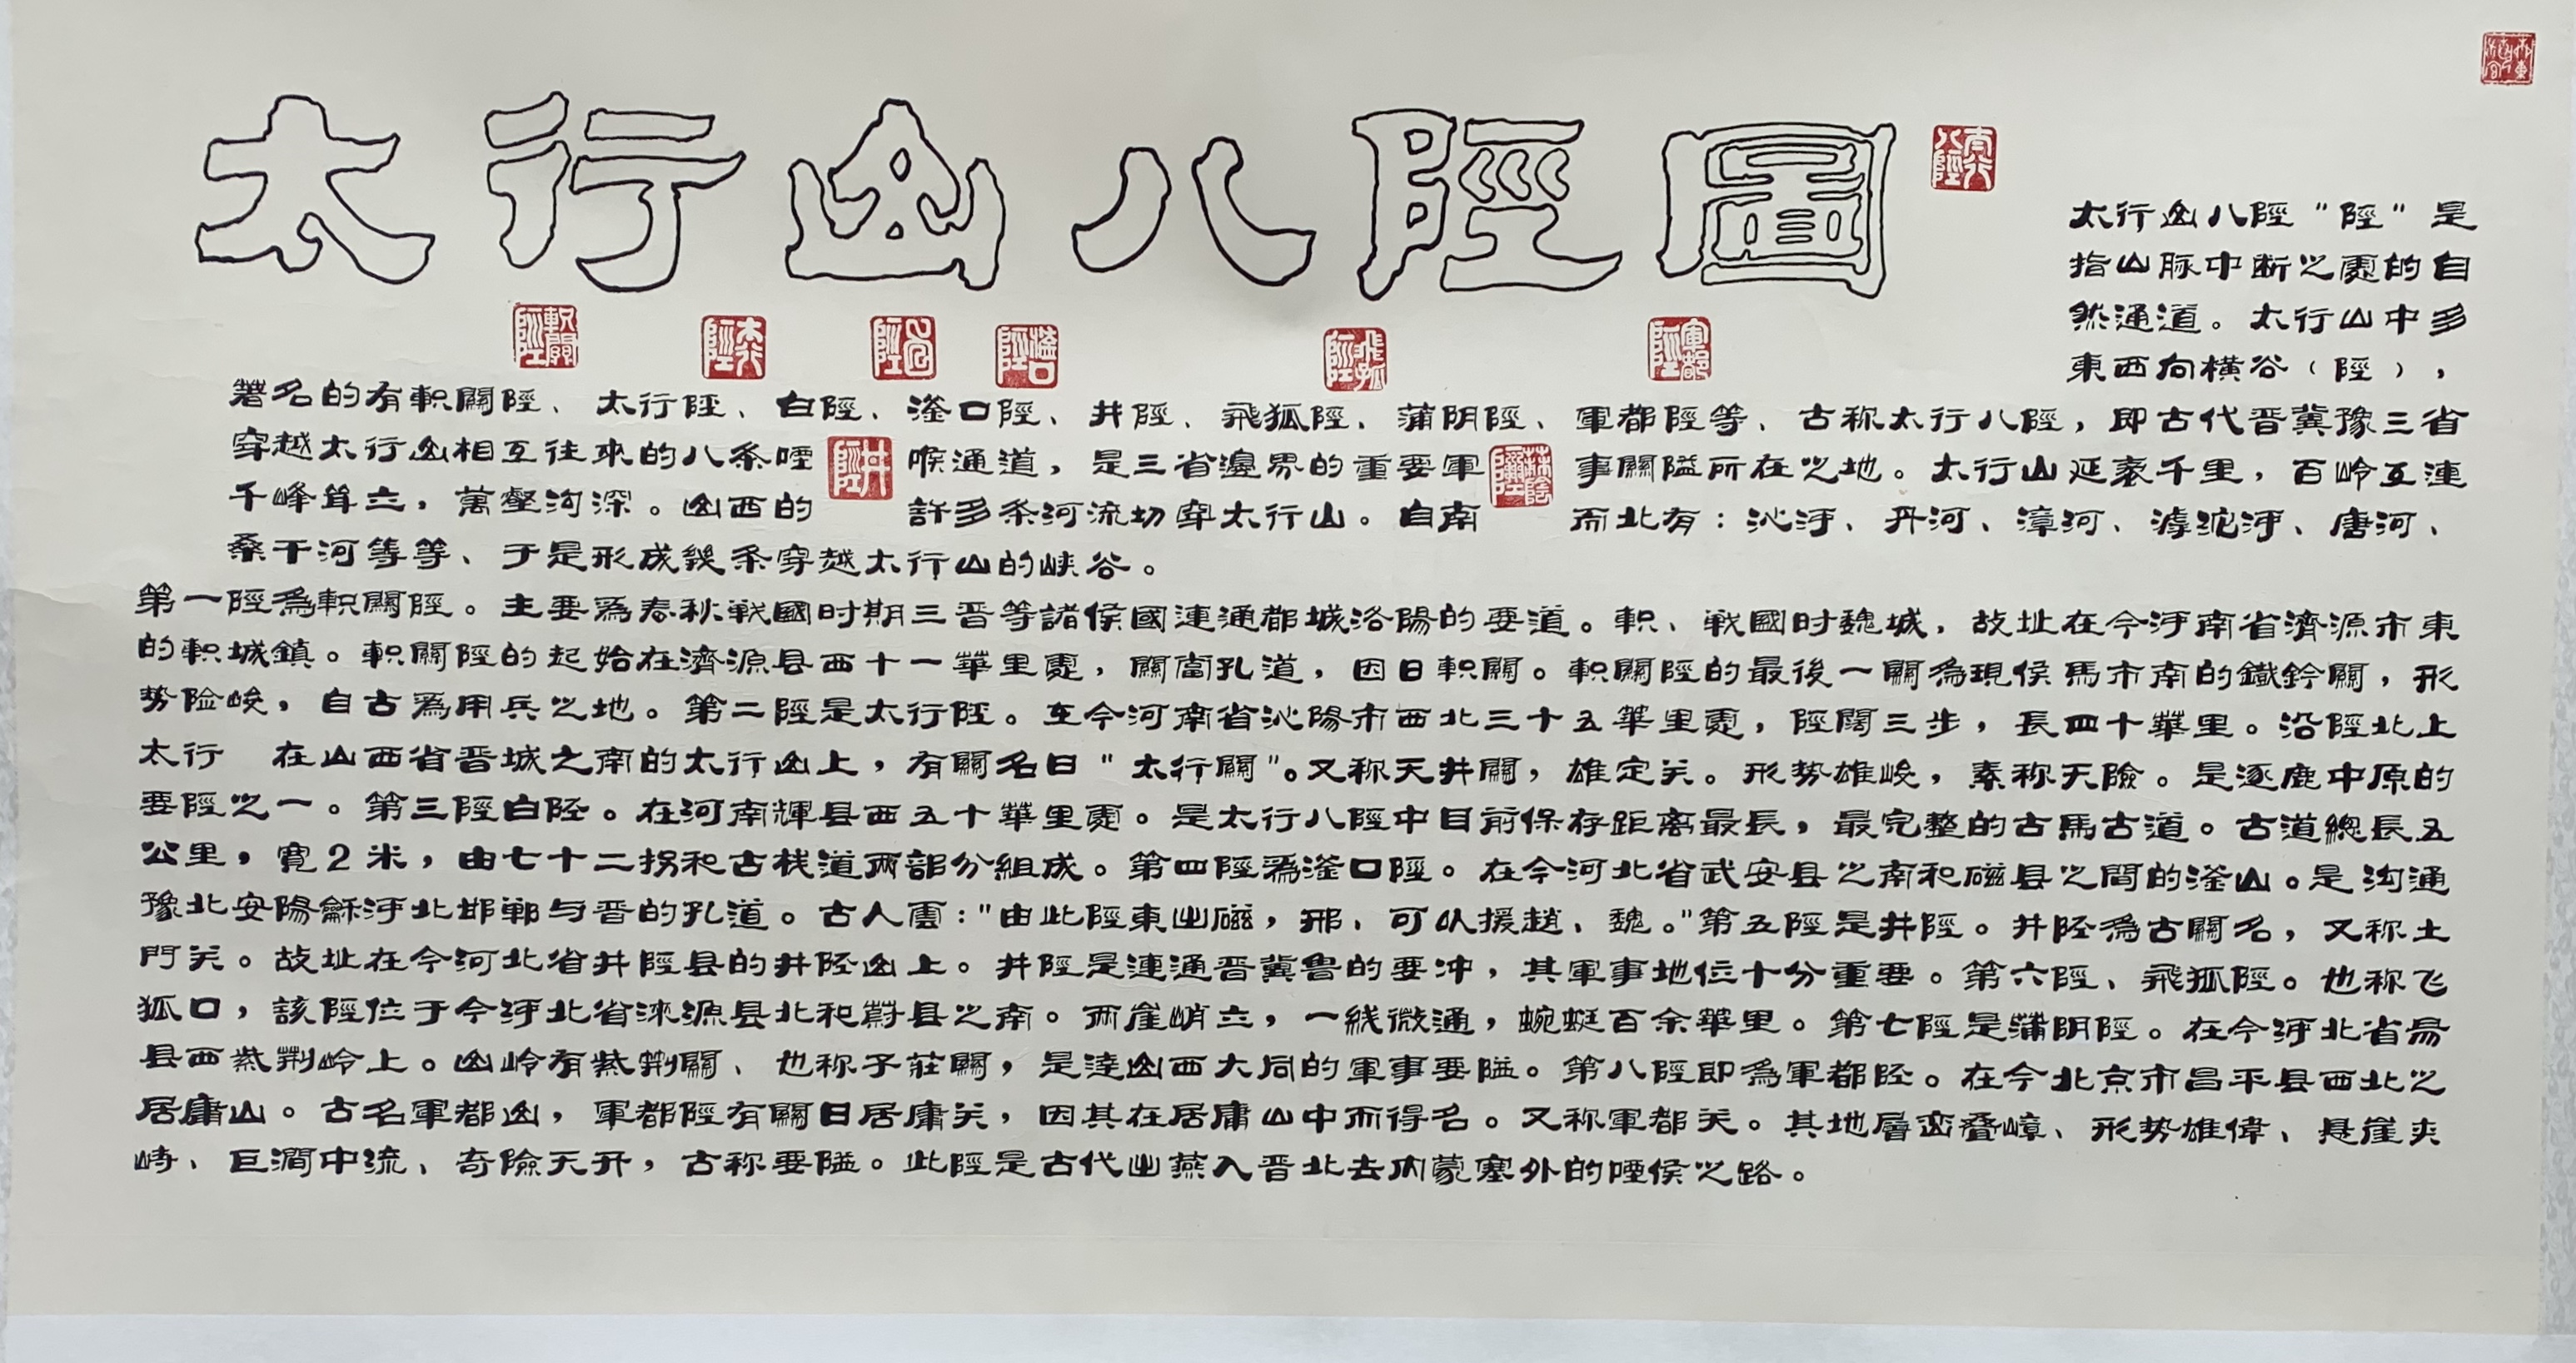 太行山八陘圖
太行八陘
太行山八陘"陘"是
指山脉中断之處的自
然通道。太行山中多
東西向横谷（陘），
軹關陘
太行陘
白陘
滏口陘
飛狐陘
軍都陘
著名的有軹關陘、太行陘、白陘、滏口陘、井陘、飛狐陘、蒲阴陘、軍都陘等、古称太行八陘，即古代晋冀豫三省
穿越太行山相互往來的八条咽喉通道，是三省邊界的重要軍事關隘所在之地。太行山延袤千里，百岭互連
井陘
蒲陰陘
千峰耸立，萬壑沟深。山西的許多条河流切穿太行山。自南而北有：沁河、丹河、漳河、滹沱河、唐河、
桑干河等等、于是形成幾条穿越太行山的峡谷。
第一陘為軹關陘。主要爲春秋戰國时期三晋等諸侯國連通都城洛陽的要道。軹、戰國时魏城，故址在今河南省濟源市東
的軹城鎮。軹關陘的起始在濟源县西十一華里處，關當孔道，因曰軹關。軹關陘的最後一關為現侯馬市南的鐵鈴關，形
势险峻，自古爲用兵之地。第二陘是太行陘。在今河南省沁陽市西北三十五華里處，陘闊三步，長四十華里。沿陘北上
太行　在山西省晋城之南的太行山上，有關名曰"太行關"。又称天井關，雄定关。形势雄峻，素称天險。是逐鹿中原的
要陘之一。第三陘白陘。在河南輝县西五十華里處。是太行八陘中目前保存距离最長，最完整的古馬古道。古道總長五
公里，寬2米，由七十二拐和古栈道两部分組成。第四陘爲滏口陘。在今河北省武安县之南和磁县之間的滏山。是沟通
豫北安陽龢河北邯鄲与晋的孔道。古人雲："由此陘東出磁，邢、可以援趙、魏。"第五陘是井陘。井陘為古關名，又称土
門关。故址在今河北省井陘县的井陘山上。井陘是連通晋冀魯的要冲，其軍事地位十分重要。第六陘、飛狐陘。也称飞
狐口，該陘位于今河北省淶源县北和蔚县之南。两崖峭立，一綫微通，蜿蜒百余華里。第七陘是蒲阴陘。在今河北省易
县西紫荆岭上。山岭有紫荆關、也称子莊關，是達山西大同的軍事要隘。第八陘即為軍都陘。在今北京市昌平县西北之
居庸山。古名軍都山，軍都陘有關曰居庸关，因其在居庸山中而得名。又称軍都关。其地層峦叠嶂、形势雄偉、悬崖夾
峙、巨澗中流、奇險天开，古称要隘。此陘是古代出燕入晋北去内蒙塞外的咽喉之路。